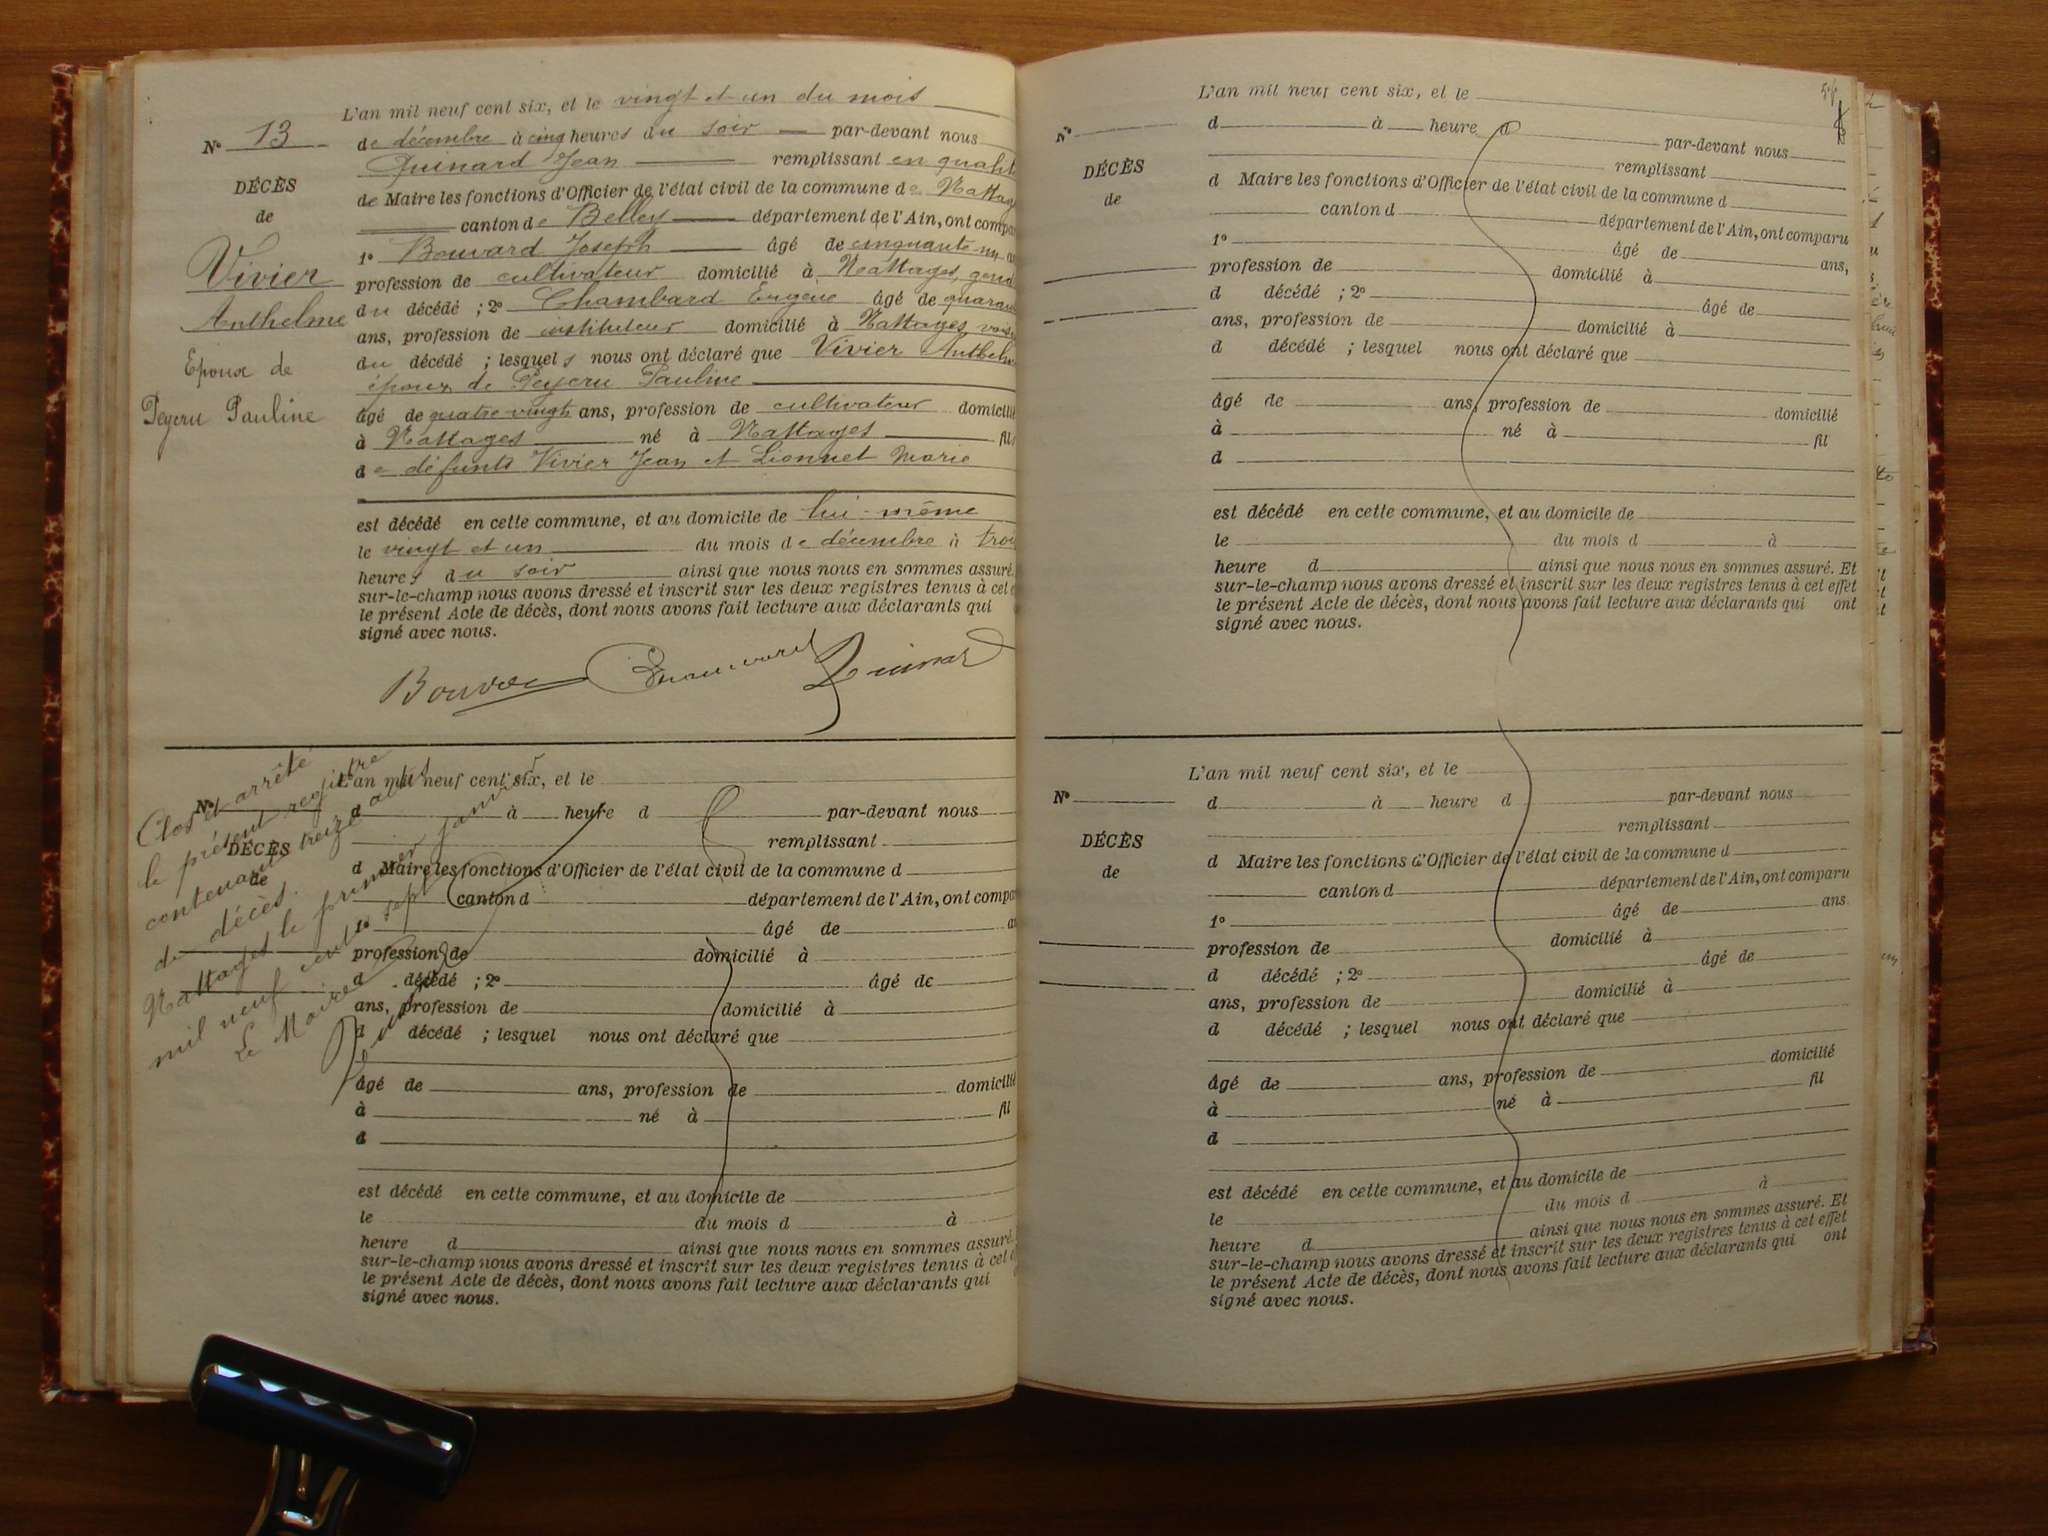 L'an mil neuf cent six, et le vingt et un du mois
N° 13
de décembre à cinq heures du soir par-devant nous
Quinard Jean remplissant en qualité
DÉCÈS
de Maire les fonctions d'Officier de l'état civil de la commune de Nattag
de
canton de Belley département de l'Ain, ont compa
Vivier
1° Bouvard Joseph âgé de cinquante un
profession de cultivateur domicilié à Nattages, gend
Anthelme
du décédé ; 2° Chambard Eugène âgé de quaran
ans, profession de instituteur domicilié à Nattages, vois
Epoux de
du décédé ; lesquels nous ont déclaré que Vivier Anthelm
époux de Peyeru Pauline
Peyeru Pauline
âgé de quatre vingts ans, profession de cultivateur domicilié
à Nattages né à Nattages fil
de défunts Vivier Jean et Lionnet Marie
est décédé en cette commune, et au domicile de lui-même
le vingt et un du mois de décembre à troi
heures du soir ainsi que nous nous en sommes assuré.
sur-le-champ nous avons dressé et inscrit sur les deux registres tenus à cet e
le présent Acte de décès, dont nous avons fait lecture aux déclarants qui
signé avec nous.
Bouvard Quinard
Clos et arrêté
le présent registre
contenant treize actes
de décès.
Nattages le premier janvier
mil neuf cent sept
Le Maire
Quinard
L'an mil neuf cent six, et le
N°
d à heure d par-devant nous
remplissant
DÉCÈS
d Maire les fonctions d'Officier de l'état civil de la commune d
de
canton d département de l'Ain, ont compa
1° âgé de an
profession de domicilié à
d décédé ; 2° âgé de
ans, profession de domicilié à
d décédé ; lesquel nous ont déclaré que
âgé de ans, profession de domicilié
à né à fil
d
est décédé en cette commune, et au domicile de
le du mois d à
heure d ainsi que nous nous en sommes assuré.
sur-le-champ nous avons dressé et inscrit sur les deux registres tenus à cet e
le présent Acte de décès, dont nous avons fait lecture aux déclarants qui
signé avec nous.
L'an mil neuf cent six, et le
N°
d à heure d par-devant nous
remplissant
DÉCÈS
d Maire les fonctions d'Officier de l'état civil de la commune d
de
canton d département de l'Ain, ont comparu
1° âgé de ans,
profession de domicilié à
d décédé ; 2° âgé de
ans, profession de domicilié à
d décédé ; lesquel nous ont déclaré que
âgé de ans, profession de domicilié
à né à fil
d
est décédé en cette commune, et au domicile de
le du mois d à
heure d ainsi que nous nous en sommes assuré. Et
sur-le-champ nous avons dressé et inscrit sur les deux registres tenus à cet effet
le présent Acte de décès, dont nous avons fait lecture aux déclarants qui ont
signé avec nous.
L'an mil neuf cent six, et le
N°
d à heure d par-devant nous
remplissant
DÉCÈS
d Maire les fonctions d'Officier de l'état civil de la commune d
de
canton d département de l'Ain, ont comparu
1° âgé de ans
profession de domicilié à
d décédé ; 2° âgé de
ans, profession de domicilié à
d décédé ; lesquel nous ont déclaré que
âgé de ans, profession de domicilié
à né à fil
d
est décédé en cette commune, et au domicile de
le du mois d à
heure d ainsi que nous nous en sommes assuré. Et
sur-le-champ nous avons dressé et inscrit sur les deux registres tenus à cet effet
le présent Acte de décès, dont nous avons fait lecture aux déclarants qui ont
signé avec nous.